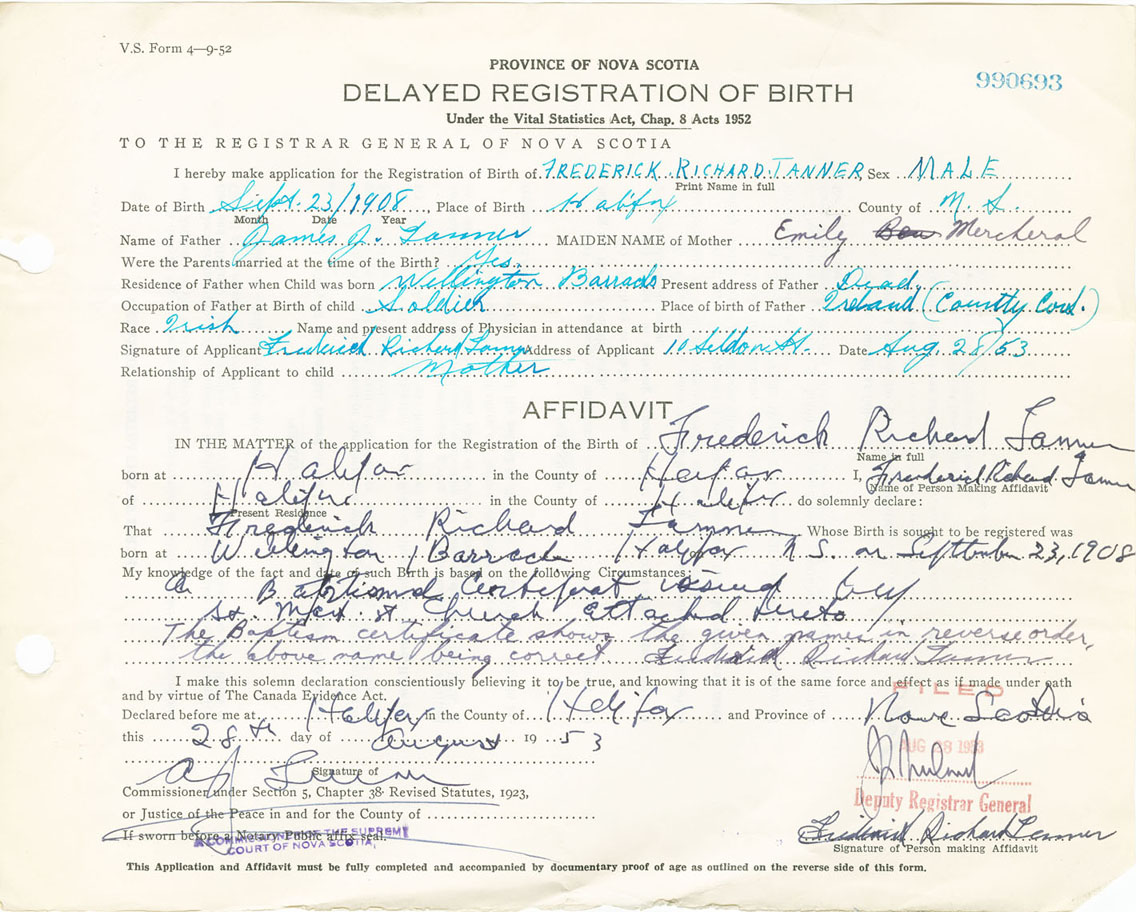 V.S. Form 4—9-52
PROVINCE OF NOVA SCOTIA
990693
DELAYED REGISTRATION OF BIRTH
Under the Vital Statistics Act, Chap. 8 Acts 1952
TO THE REGISTRAR GENERAL OF NOVA SCOTIA
I hereby make application for the Registration of Birth of FREDERICK RICHARD TANNER Sex MALE
Print Name in full
Date of Birth Sept. 23/1908 Place of Birth Halifax County of N.S.
Month Date Year
Name of Father James J. Tanner MAIDEN NAME of Mother Emily
Were the Parents married at the time of the Birth? Yes.
Residence of Father when Child was born Wellington Barracks Present address of Father Dead
Occupation of Father at Birth of child Soldier Place of birth of Father Ireland (County
Race Irish Name and present address of Physician in attendance at birth
Signature of Applicant Frederick Richard Tanner Address of Applicant 10 Seldon St. Date Aug 28/53
Relationship of Applicant to child Mother
AFFIDAVIT
IN THE MATTER of the application for the Registration of the Birth of Frederick Richard Tanner
Name in full
born at Halifax in the County of Halifax I, Frederick Richard Tanner
Name of Person Making Affidavit
of Halifax in the County of Halifax do solemnly declare:
Present Residence
That Frederick Richard Tanner Whose Birth is sought to be registered was
born at Wellington Barracks Halifax N.S. on September 23, 1908
My knowledge of the fact and date of such Birth is based on the following Circumstances:
A Baptismal Certificate issued by
St. Church attached hereto
The Baptism certificate shows the given names in reverse order,
the above name being correct. Frederick Richard Tanner
I make this solemn declaration conscientiously believing it to be true, and knowing that it is of the same force and effect as if made under oath
and by virtue of The Canada Evidence Act.
FILED
Declared before me at Halifax in the County of Halifax and Province of Nova Scotia
this 28th day of August 1953
AUG 28 1953
Signature of
Commissioner under Section 5, Chapter 38 Revised Statutes, 1923,
Deputy Registrar General
or Justice of the Peace in and for the County of
If sworn before a Notary Public affix seal.
A COMMISSIONER OF THE SUPREME
COURT OF NOVA SCOTIA
Frederick Richard Tanner
Signature of Person making Affidavit
This Application and Affidavit must be fully completed and accompanied by documentary proof of age as outlined on the reverse side of this form.